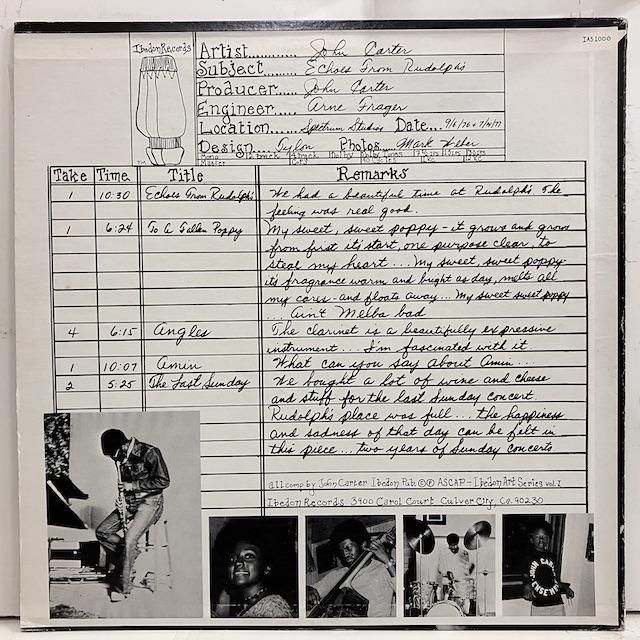 IAS 1000
Ibedon Records
Artist........... John Carter
Subject...... Echoes From Rudolph's
Producer..... John Carter
Engineer..... Arne Frager
Location....... Spectrum Studios Date... 9/6/76 + 7/14/77
Design.... Tylon Photos....... Mark Weber
Take Time Title Remarks
1 10:30 Echoes From Rudolph's We had a beautiful time at Rudolph's. The
feeling was real good.
1 6:24 To A Fallen Poppy My sweet, sweet poppy - it grows and grows
from first it's start, one purpose clear, to
steal my heart... My sweet, sweet poppy-
it's fragrance warm and bright as day, melts all
my cares - and floats away... My sweet sweet poppy
... Ain't Melba bad
4 6:15 Angles The clarinet is a beautifully expressive
instrument... I'm fascinated with it
1 10:07 Amin What can you say about Amin...
2 5:25 The Last Sunday We bought a lot of wine and cheese
and stuff for the last Sunday concert.
Rudolph's place was full... the happiness
and sadness of that day can be felt in
this piece... two years of Sunday concerts
all comp by John Carter Ibedon Pub. ©℗ ASCAP - Ibedon Art Series vol. 1
Ibedon Records 3900 Carol Court Culver City, Ca. 90230
JOHN CARTER
ENSEMBLE